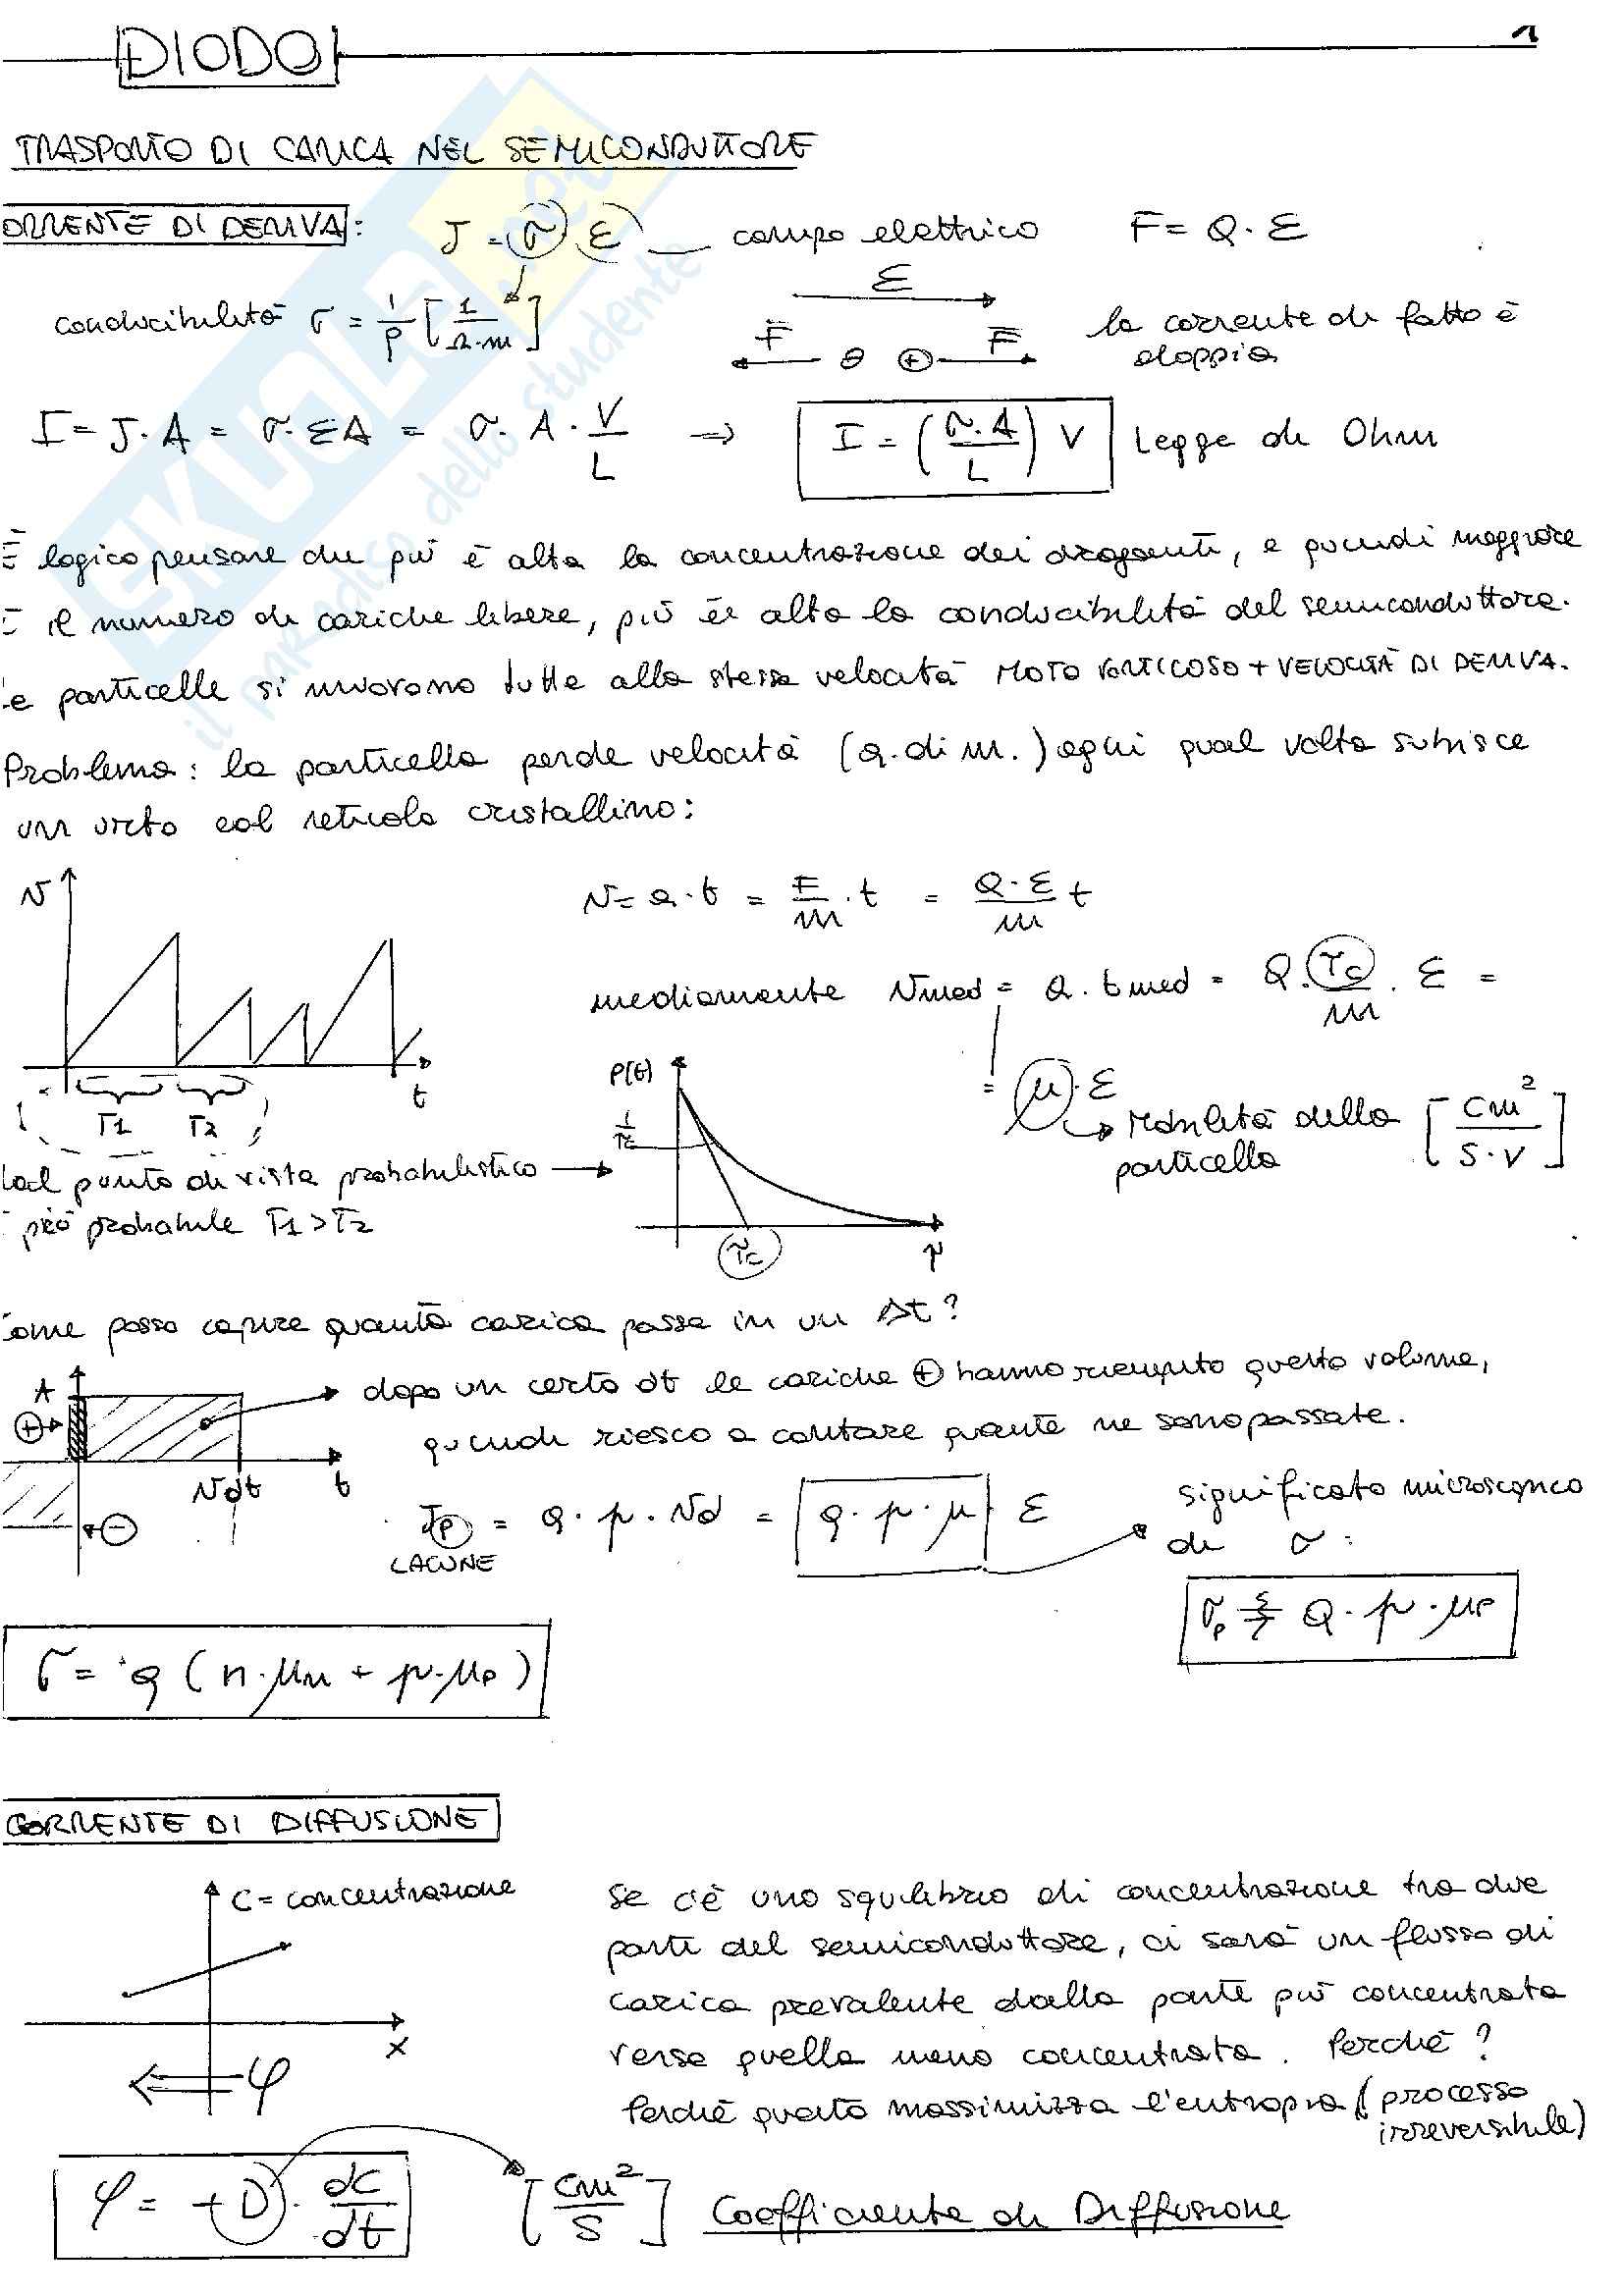 DIODO
1
TRASPORTO DI CARICA NEL SEMICONDUTTORE
ORRENTE DI DERIVA: J = σ ε campo elettrico F = Q · ε
conducibilità σ = 1/ρ [1/Ω·m] ε
F ⊖ ⊕ F la corrente di fatto è doppia
I = J · A = σ · εA = σ · A · V/L ⇒ I = (σ·A/L) V Legge di Ohm
È logico pensare che più è alta la concentrazione dei droganti, e quindi maggiore
il numero di cariche libere, più è alta la conducibilità del semiconduttore.
e particelle si muovono tutte alla stessa velocità MOTO VORTICOSO + VELOCITÀ DI DERIVA.
Problema: la particella perde velocità (q. di m.) ogni qual volta subisce
un urto col reticolo cristallino:
v
t
T1 T2
v = a · t = F/m · t = Q·ε/m t
mediamente vmed = a · tmed = Q · τc/m · ε =
= μ · ε
Mobilità della particella [cm²/s·V]
P(t)
1/τc
τc
τ
dal punto di vista probabilistico →
più probabile T1 > T2
ome posso capire quanta carica passa in un Δt?
A
⊕ →
vdt t
⊖
dopo un certo dt le cariche ⊕ hanno riempito questo volume,
quindi riesco a contare quante ne sono passate.
Jp = q · p · vd = q · p · μ ε
LACUNE
significato microscopico
di σ :
σp = q · p · μp
σ = q (n · μn + p · μp)
CORRENTE DI DIFFUSIONE
C = concentrazione
x
φ
Se c'è uno squilibrio di concentrazione tra due
parti del semiconduttore, ci sarà un flusso di
carica prevalente dalla parte più concentrata
verso quella meno concentrata. Perché ?
Perché questo massimizza l'entropia (processo
irreversibile)
φ = + D · dC/dt [cm²/s] Coefficiente di Diffusione